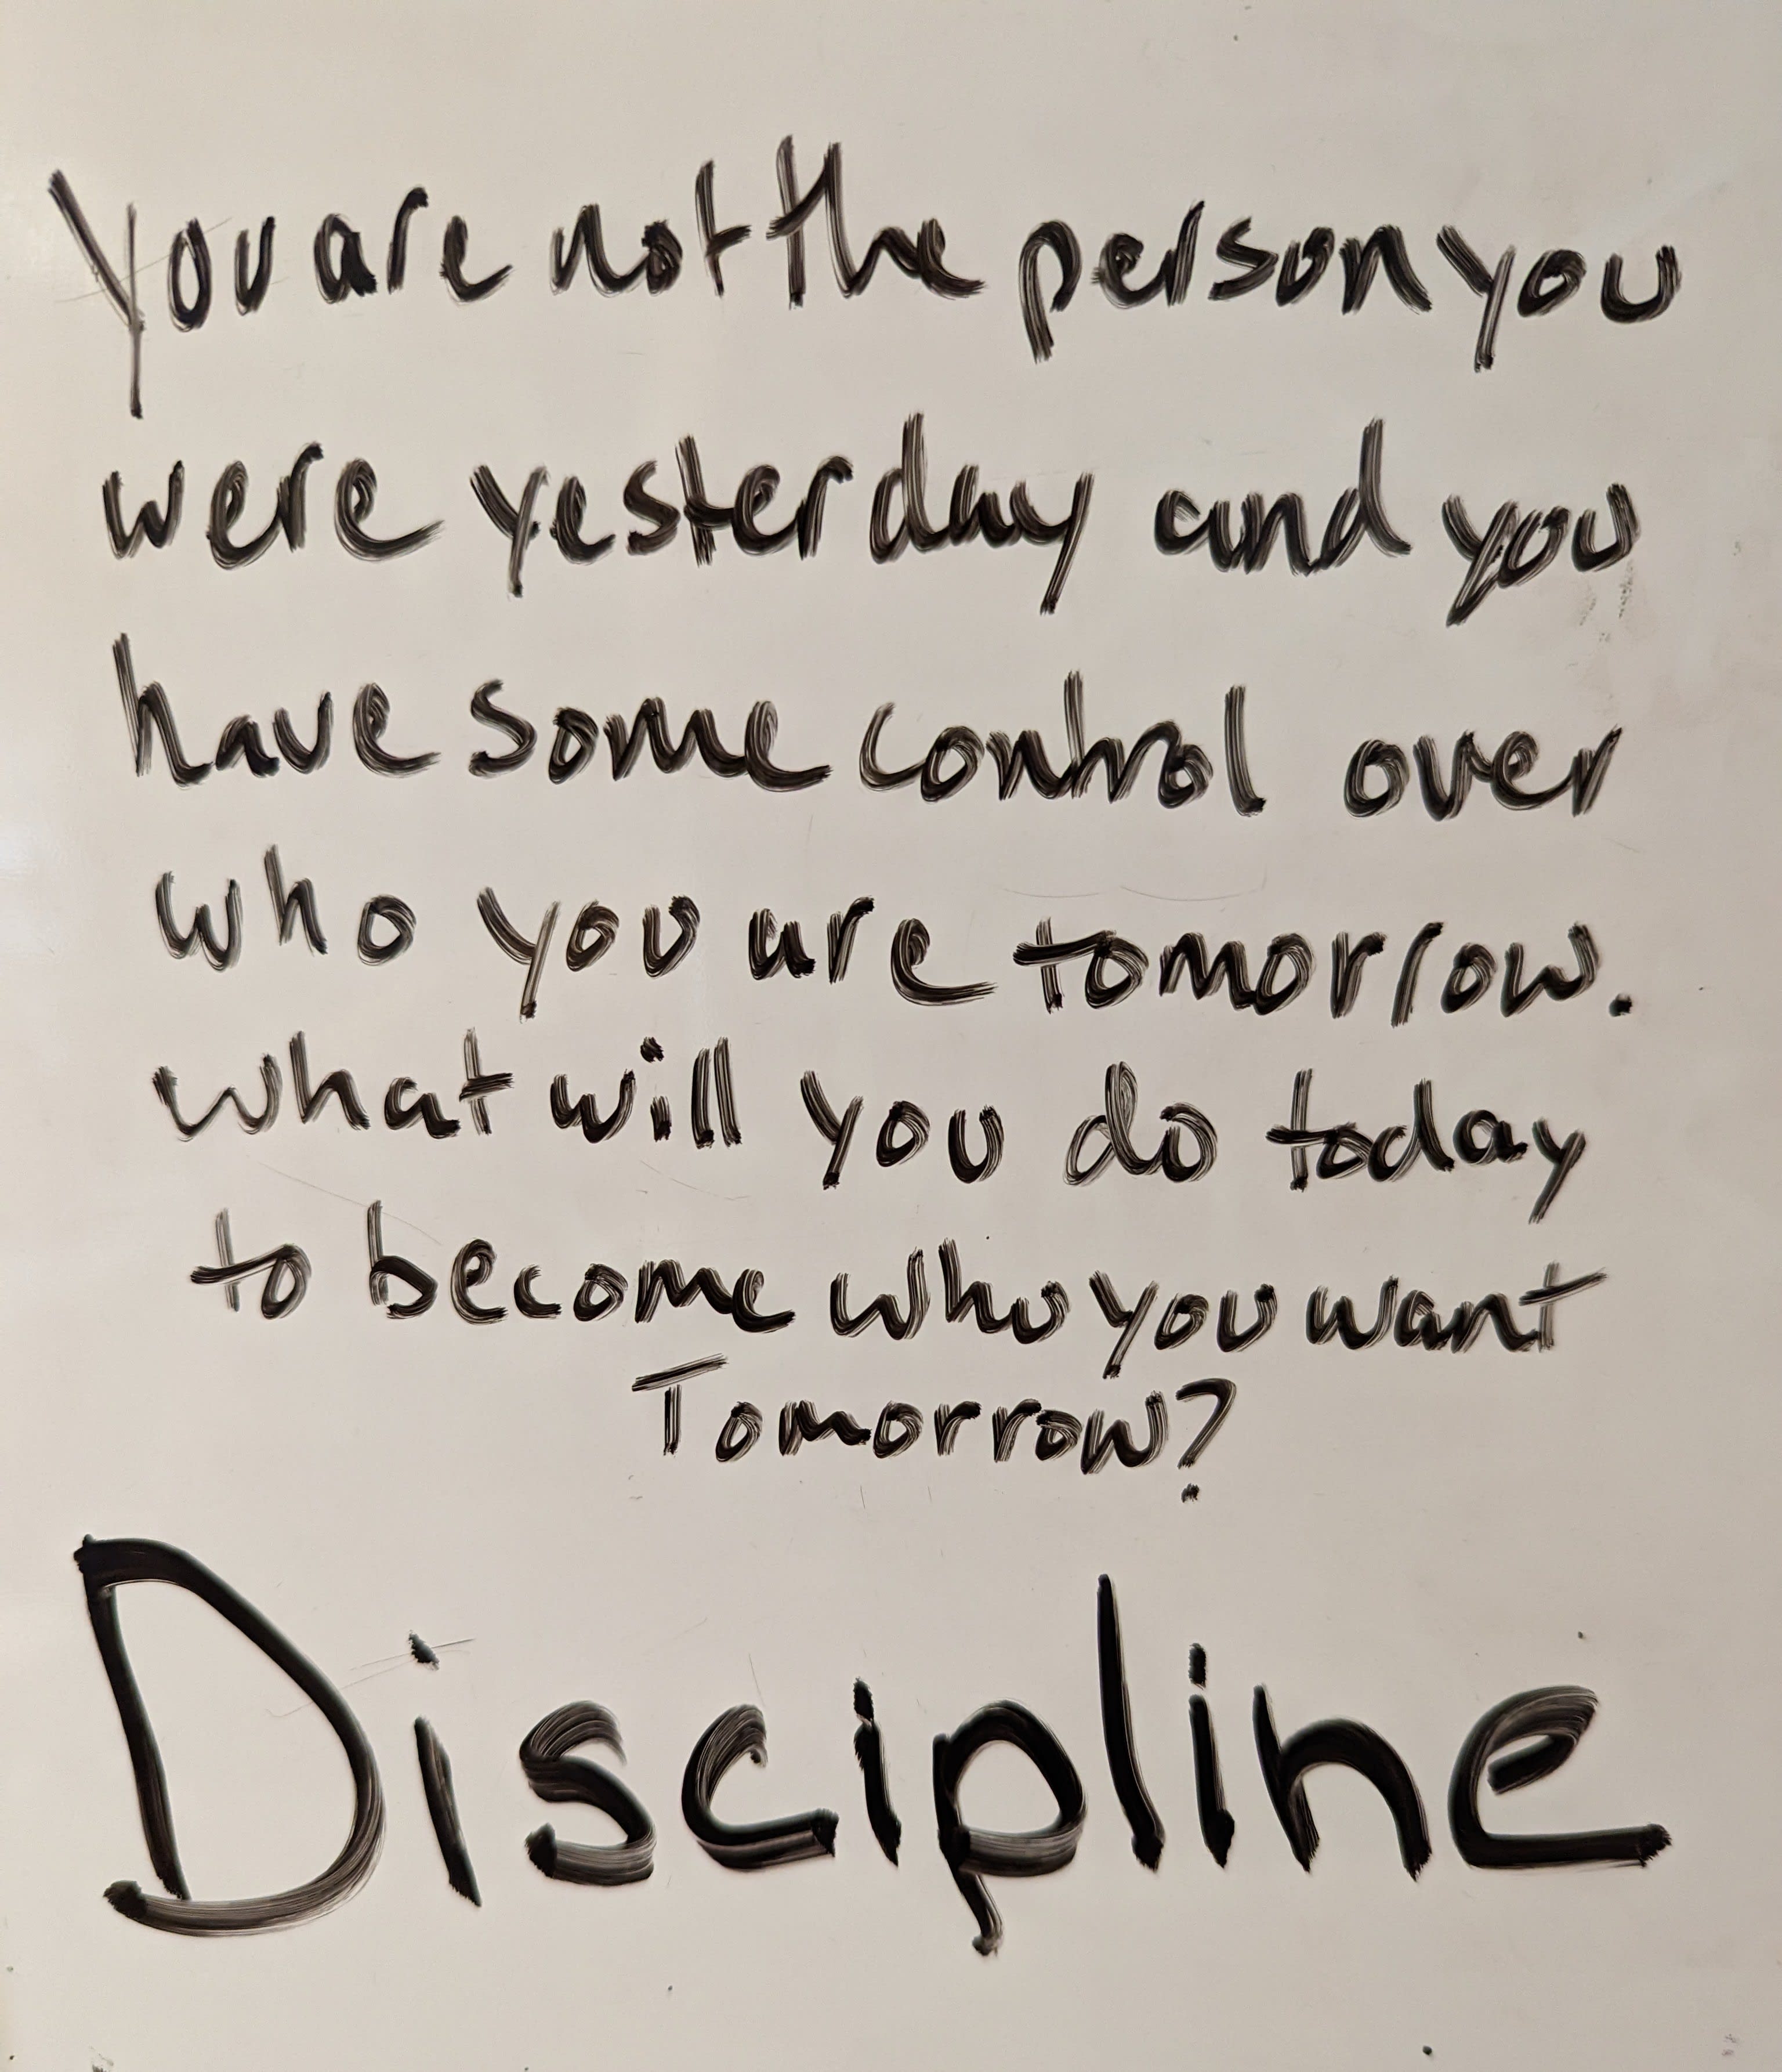 You are not the person you
were yesterday and you
have some control over
who you are tomorrow.
What will you do today
to become who you want
Tomorrow?
Discipline